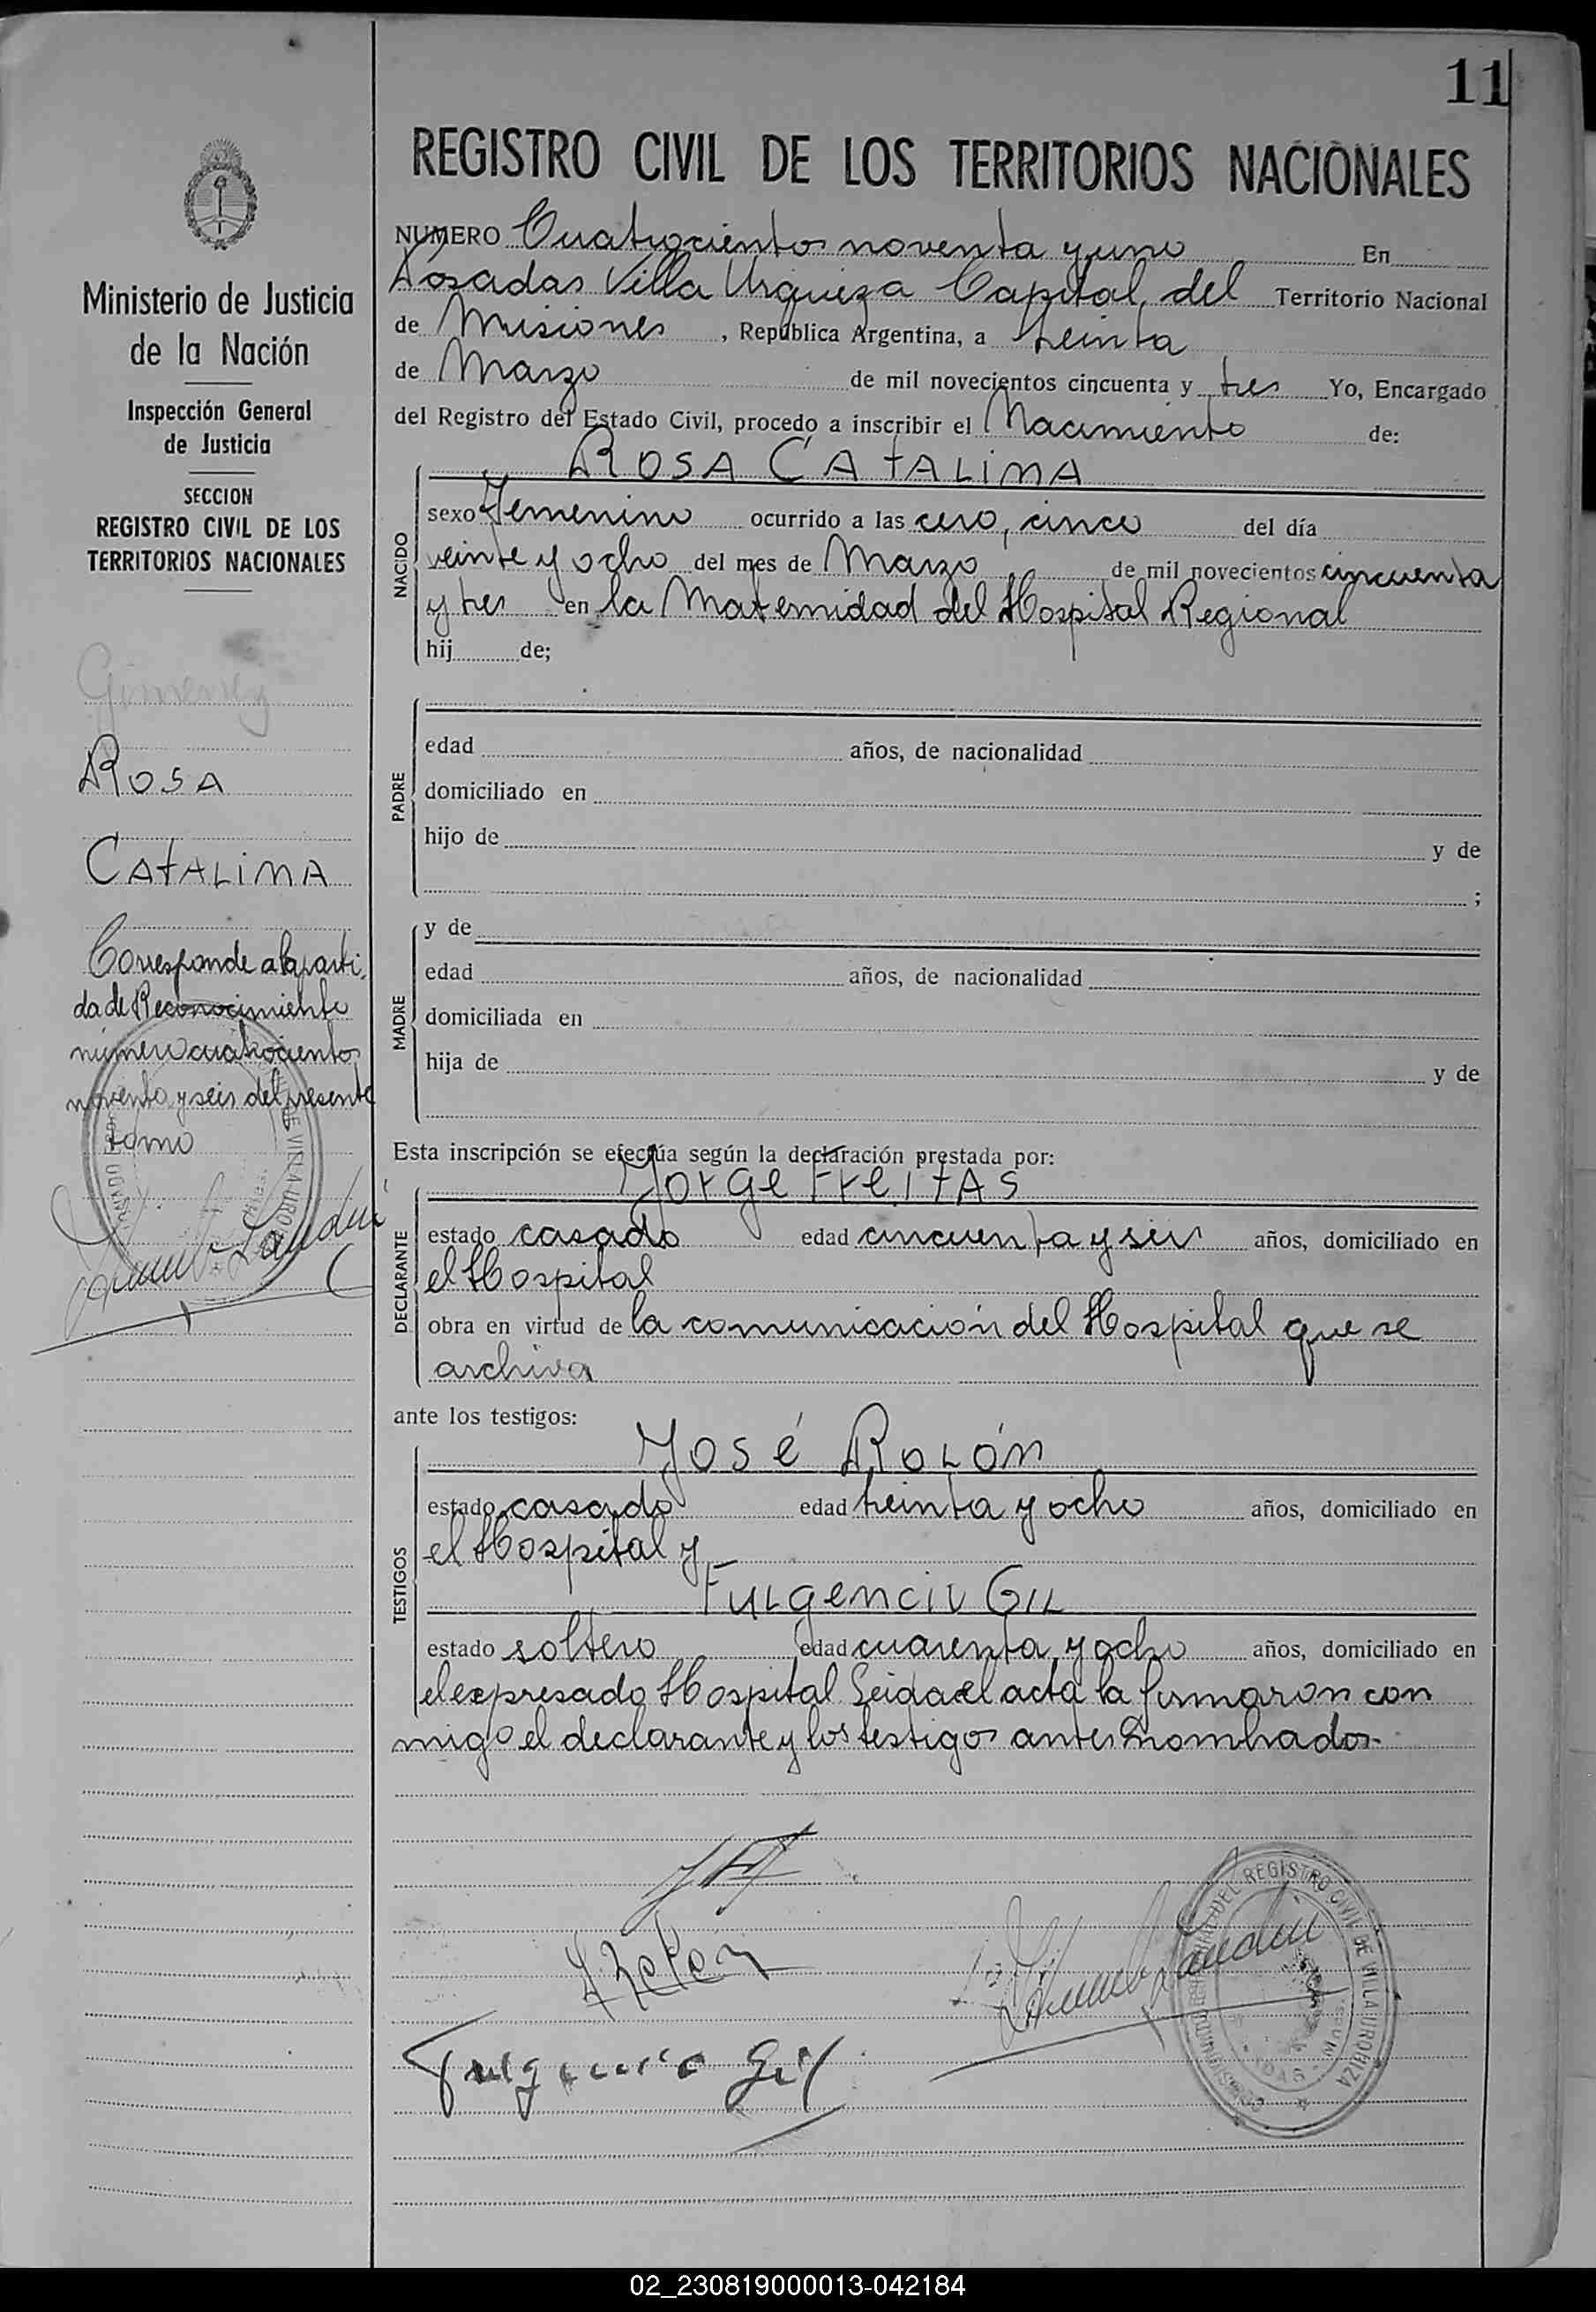 11
REGISTRO CIVIL DE LOS TERRITORIOS NACIONALES
NUMERO Cuatrocientos noventa y uno En
Posadas Villa Urquiza Capital del Territorio Nacional
de Misiones, República Argentina, a treinta
de Marzo de mil novecientos cincuenta y tres Yo, Encargado
del Registro del Estado Civil, procedo a inscribir el Nacimiento de:
NACIDO
ROSA CATALINA
sexo Femenino ocurrido a las cero, cinco del día
veinte y ocho del mes de Marzo de mil novecientos cincuenta
y tres en la Maternidad del Hospital Regional
hij de;
PADRE
edad años, de nacionalidad
domiciliado en
hijo de y de
;
MADRE
y de
edad años, de nacionalidad
domiciliada en
hija de y de
Esta inscripción se efectúa según la declaración prestada por:
DECLARANTE
Jorge Freitas
estado casado edad cincuenta y seis años, domiciliado en
el Hospital
obra en virtud de la comunicación del Hospital que se
archiva
ante los testigos:
TESTIGOS
José Rolón
estado casado edad treinta y ocho años, domiciliado en
el Hospital y
Fulgencio Gil
estado soltero edad cuarenta y ocho años, domiciliado en
el expresado Hospital Leida el acta la firmaron con
migo el declarante y los testigos antes nombrados.-
Fulgencio Gil
REGISTRO CIVIL DE VILLA URQUIZA
Ministerio de Justicia
de la Nación
Inspección General
de Justicia
SECCION
REGISTRO CIVIL DE LOS
TERRITORIOS NACIONALES
Gimenez
ROSA
CATALINA
Corresponde a la parti
da de Reconocimiento
número cuatrocientos
noventa y seis del presente
tomo
02_230819000013-042184